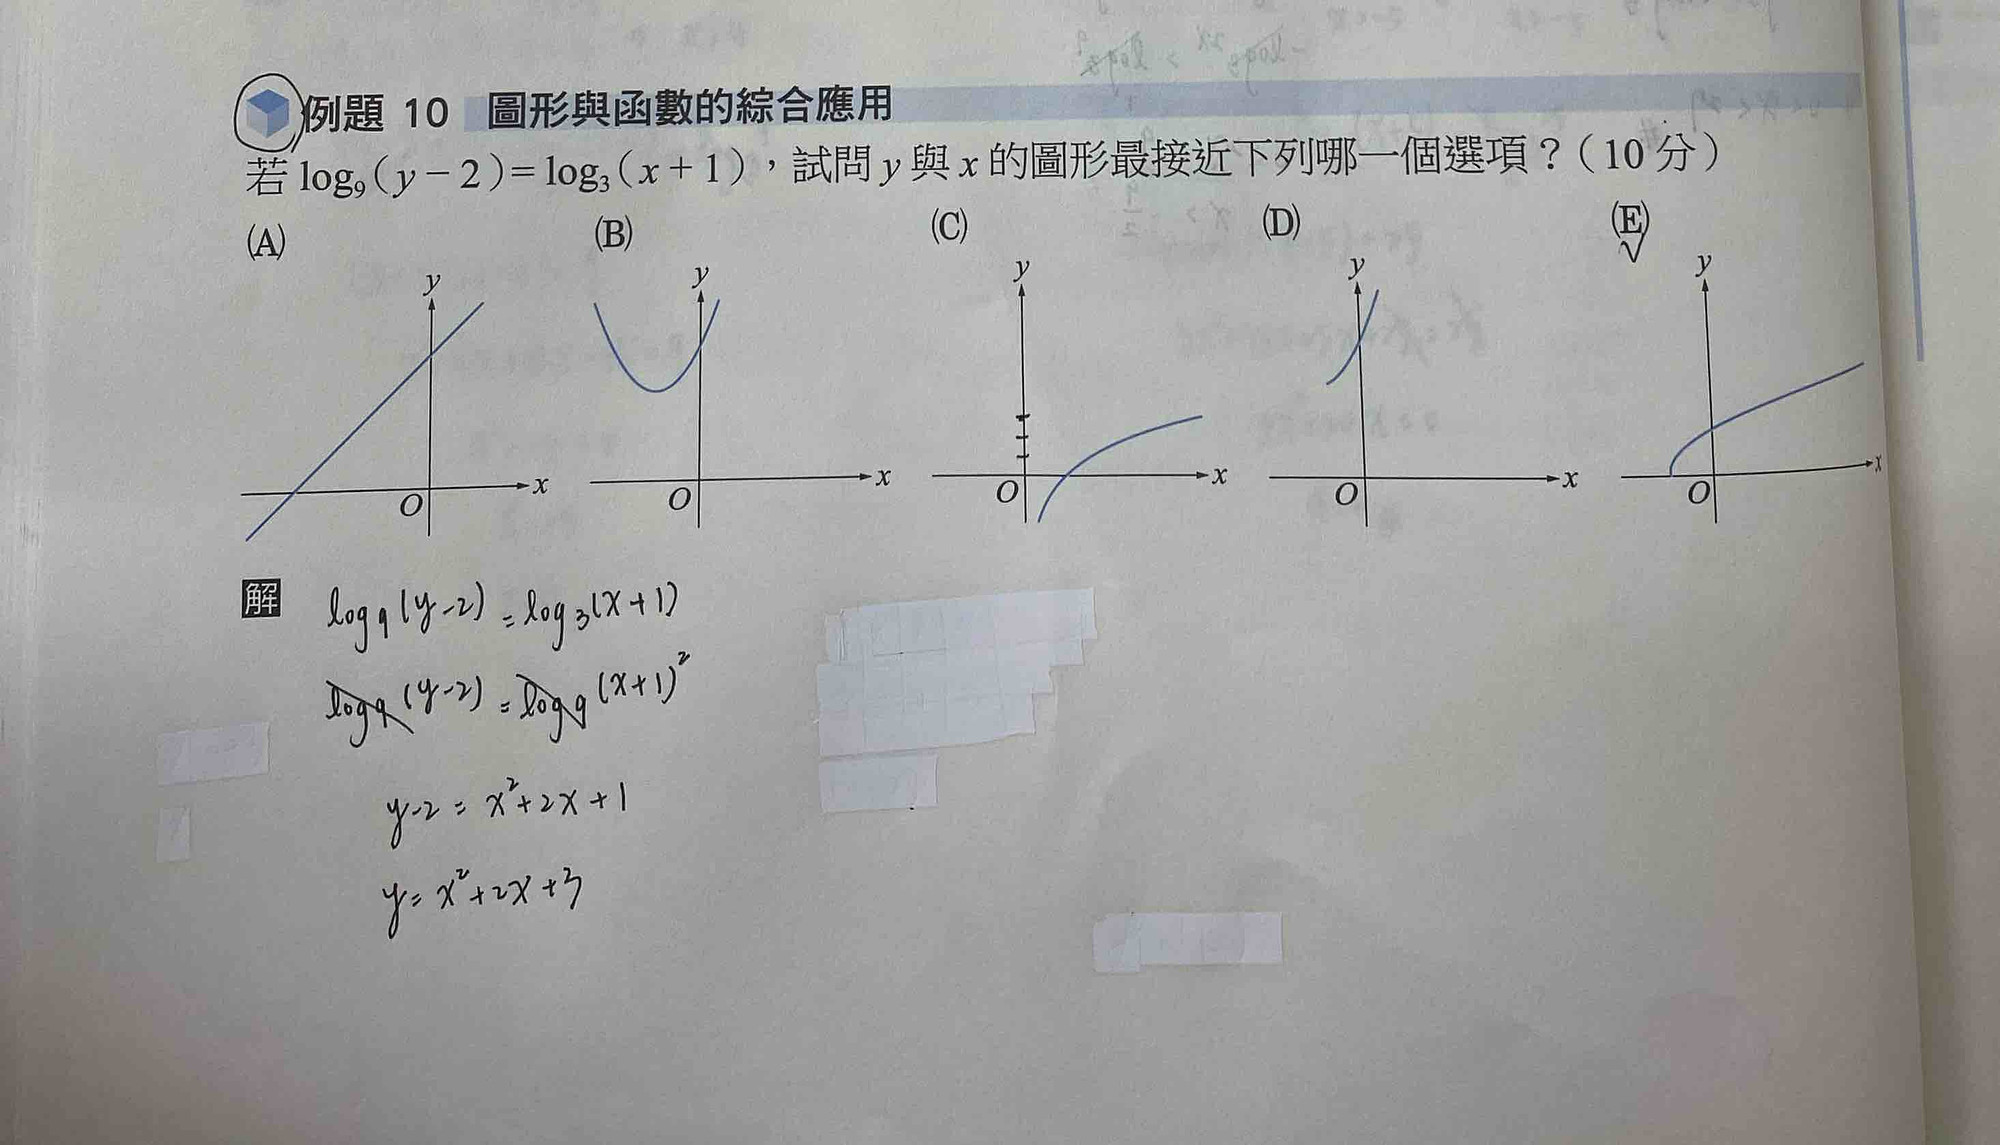 例題 10 圖形與函數的綜合應用
若 log₉(y－2)＝log₃(x＋1)，試問 y 與 x 的圖形最接近下列哪一個選項？（10 分）
(A) (B) (C) (D) (E) √
y y y y y
x x x x x
O O O O O
解 log₉(y-2) = log₃(x+1)
log₉(y-2) = log₉(x+1)²
y-2 = x²+2x+1
y = x²+2x+3